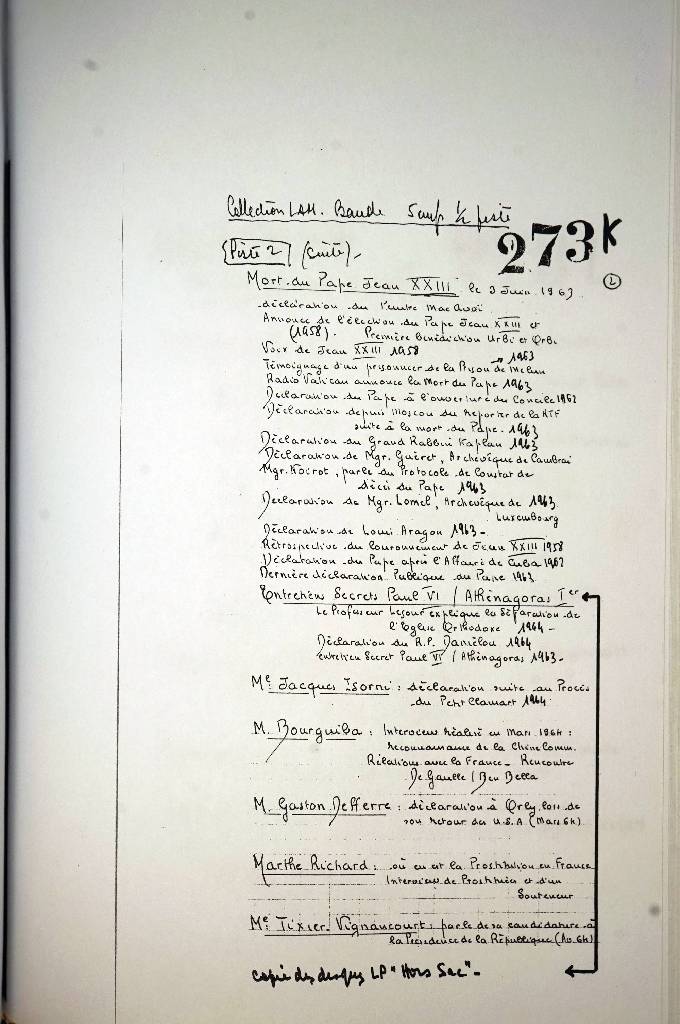 Collection LAM. Bande 5 cm/s 1/2 piste
273K
Piste 2 (suite)-
2
Mort du Pape Jean XXIII le 3 Juin 1963
déclaration du Peintre Mac Avoï
Annonce de l'élection du Pape Jean XXIII et
(1958). Première bénédiction Urbi et Orbi
Voix de Jean XXIII 1958
" 1963
Témoignage d'un prisonnier de la Prison de Melun
Radio Vatican annonce la Mort du Pape 1963
Déclaration du Pape à l'ouverture du Concile 1962
Déclaration depuis Moscou du Reporter de la RTF
suite à la mort du Pape. 1963
Déclaration du Grand Rabbin Kaplan 1963
Déclaration de Mgr. Guéret, Archevêque de Cambrai
Mgr. Noirot, parle du Protocole de Constat de
décès du Pape 1963
Déclaration de Mgr. Lomel, Archevêque de 1963
Luxembourg
Déclaration de Louis Aragon 1963-
Rétrospective du Couronnement de Jean XXIII 1958
Déclaration du Pape après l'Affaire de Cuba 1962
Dernière déclaration Publique du Pape 1963
Entretien Secrets Paul VI / Athénagoras Ier
Le Professeur Lesour explique la Séparation de
l'Eglise Orthodoxe 1964-
Déclaration du R.P. Daniélou 1964
Entretien Secret Paul VI / Athénagoras 1963-
Me. Jacques Isorni : déclaration suite au Procès
du Petit Clamart 1964
M. Bourguiba : Interview réalisé en Mars 1964 :
Reconnaissance de la Chine Comm.
Rélations avec la France - Rencontre
De Gaulle / Ben Bella
M. Gaston Defferre : déclaration à Orly lors de
son Retour des U.S.A (Mars 64)
Marthe Richard : où en est la Prostitution en France
Interview de Prostituées et d'un
Souteneur
Me. Tixier-Vignancourt : parle de sa candidature à
la Présidence de la République (Av. 64)
copie des disques LP "Hors Sac"-